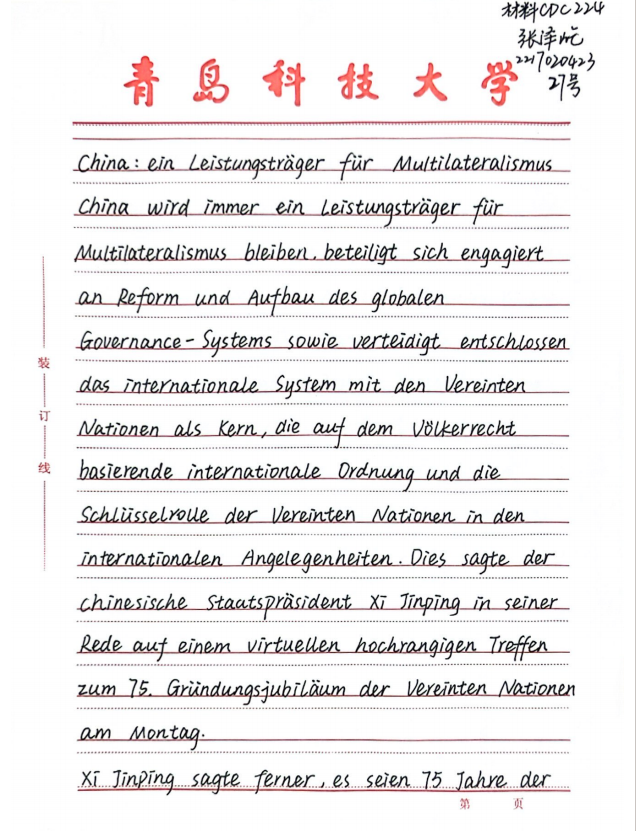 材料CDC224
张泽屹
2217020423
27号
青岛科技大学
China: ein Leistungsträger für Multilateralismus
China wird immer ein Leistungsträger für
Multilateralismus bleiben, beteiligt sich engagiert
an Reform und Aufbau des globalen
Governance-Systems sowie verteidigt entschlossen
das internationale System mit den Vereinten
Nationen als Kern, die auf dem Völkerrecht
basierende internationale Ordnung und die
Schlüsselrolle der Vereinten Nationen in den
internationalen Angelegenheiten. Dies sagte der
chinesische Staatspräsident Xi Jinping in seiner
Rede auf einem virtuellen hochrangigen Treffen
zum 75. Gründungsjubiläum der Vereinten Nationen
am Montag.
Xi Jinping sagte ferner, es seien 75 Jahre der
装
订
线
第 页